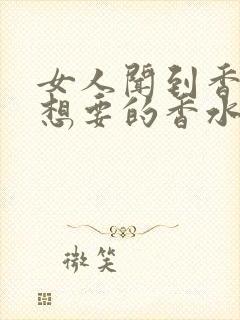 女人闻到香
想要的香水
微笑